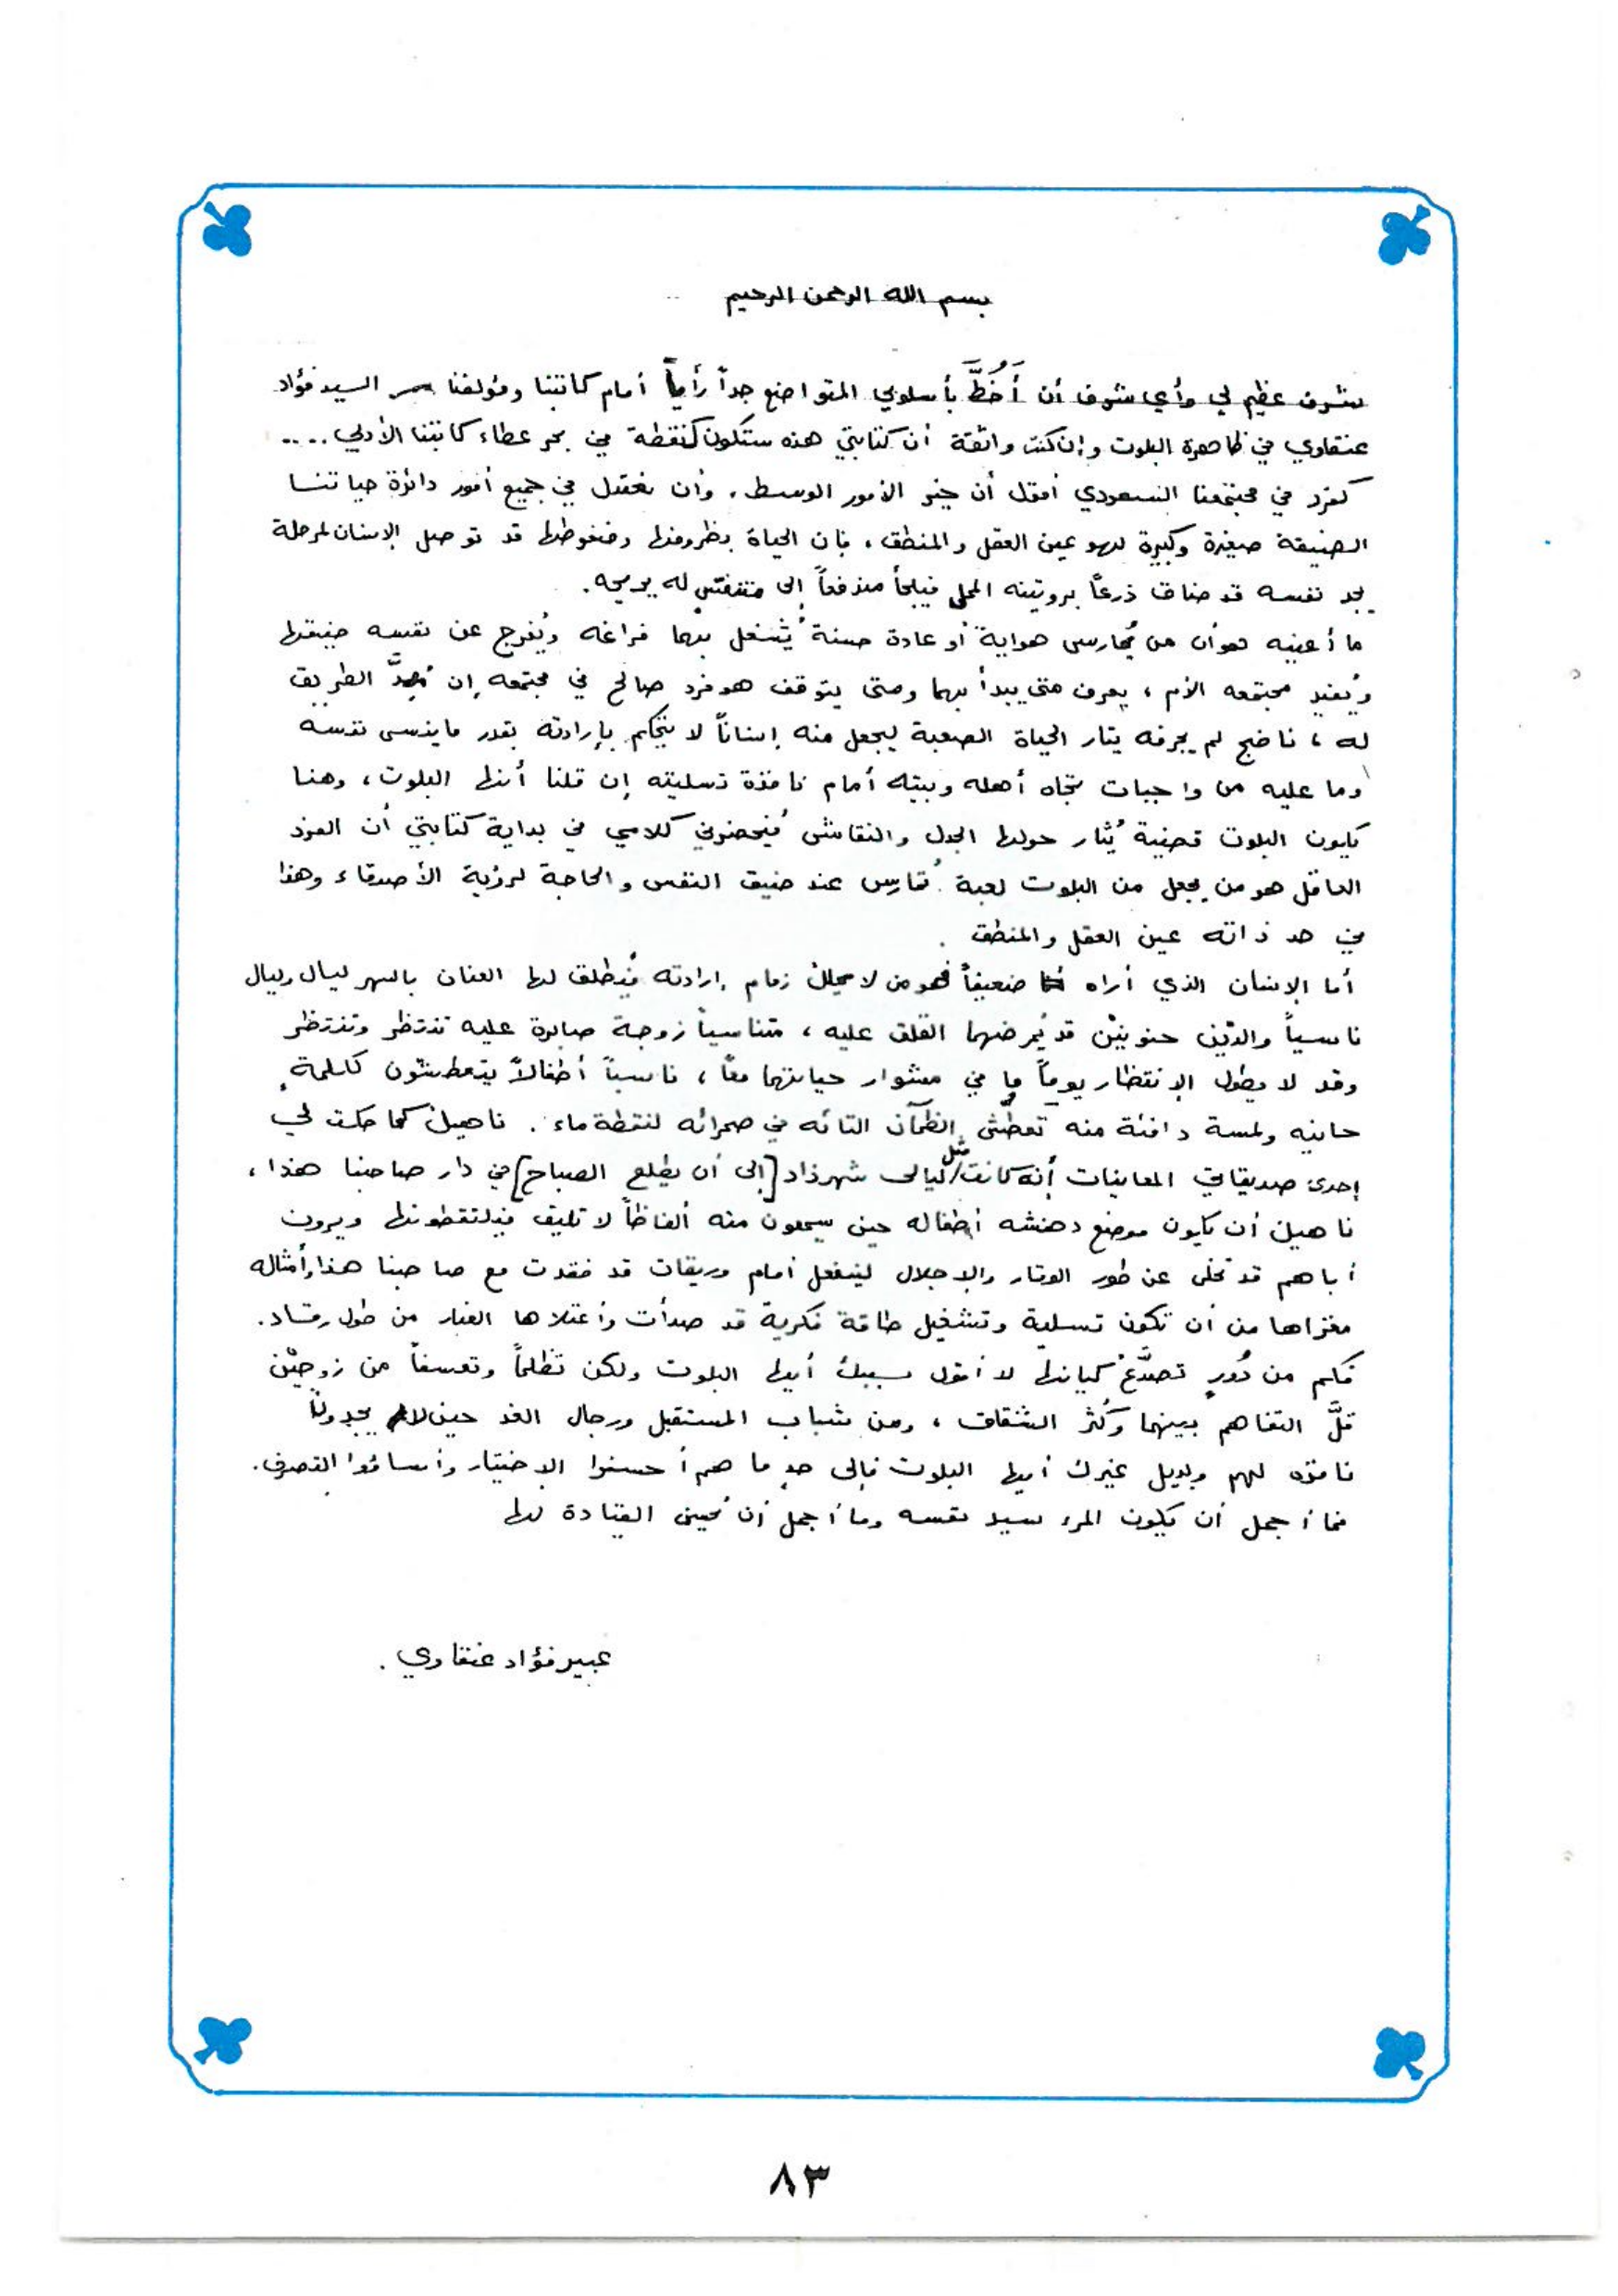 بسم الله الرحمن الرحيم
شرف عظيم لي وأي شرف أن أَخُطَّ بأسلوبي المتواضع جداً رأياً أمام كاتبنا ومؤلفنا السيد فؤاد
عنقاوي في ظاهرة البلوت وإن كنت واثقة أن كتابتي هذه ستكون كنقطة في بحر عطاء كاتبنا الأدبي ....
كفرد في مجتمعنا السعودي أقول أن خير الأمور الوسط . وأن نعتدل في جميع أمور دائرة حياتنا
الضيقة صغيرة وكبيرة لهو عين العقل والمنطق ، فإن الحياة بظروفها وضغوطها قد توصل الإنسان لمرحلة
يجد نفسه قد ضاق ذرعاً بروتينه الممل فيلجأ مندفعاً إلى متنفسٍ له يريحه .
ما أعنيه هو أن من يُمارس هواية أو عادة حسنة يُشغل بها فراغه ويُفرج عن نفسه ضيقها
ويُفيد مجتمعه الأم ، يعرف متى يبدأ بها ومتى يتوقف هو فرد صالح في مجتمعه إن مُهِّدَ الطريق
له ، ناضج لم يجرفه تيار الحياة الصعبة ليجعل منه إنساناً لا يتحكم بإرادته بقدر ما ينسى نفسه
وما عليه من واجبات تجاه أهله وبيته أمام نافذة تسليته إن قلنا أنها البلوت ، وهنا
يكون البلوت قضية يُثار حولها الجدل والنقاش فيحضرني كلامي في بداية كتابتي أن الفرد
العاقل هو من يجعل من البلوت لعبة تُمارس عند ضيق النفس والحاجة لرؤية الأصدقاء وهذا
في حد ذاته عين العقل والمنطق .
أما الإنسان الذي أراه ضعيفاً فهو من لا يملك زمام إرادته فيُطلق لها العنان بالسهر ليال وليال
ناسياً والدَيْن حنونيْن قد يُمرضهما القلق عليه ، متناسياً زوجة صابرة عليه تنتظر وتنتظر
وقد لا يطول الإنتظار يوماً ما في مشوار حياتهما معاً ، ناسياً أطفالاً يتعطشون كلمةٍ
حانيه ولمسة دافئة منه تعطُّش الظمآن التائه في صحرائه لنقطة ماء . ناهيك كما حكت لي
إحدى صديقاتي المعانيات أنه كانت مثل ليالى شهرذاد [إلى أن يطلع الصباح] في دار صاحبنا هذا ،
ناهيك أن يكون موضع دهشه أطفاله حين يسمعون منه ألفاظاً لا تليق فيلتقطونها ويرون
أباهم قد تخلى عن طور الوقار والإجلال لينفعل أمام وريقات قد فقدت مع صاحبنا هذا وأمثاله
مغزاها من أن تكون تسلية وتشغيل طاقة فكرية قد صدأت وأعتلاها الغبار من طول رقاد .
فكم من دُورٍ تصدَّعَ كيانها لا أقول بسببك أيها البلوت ولكن تظلماً وتعسفاً من زوجيْن
قلَّ التفاهم بينهما وكَثُر الشقاق ، ومن شباب المستقبل ورجال الغد حين لا يجدون
نافذه لهم وبديل غيرك أيها البلوت فإلى حدٍ ما هم أحسنوا الإختيار وأساؤوا التصرف .
فما أجمل أن يكون المرء سيد نفسه وما أجمل أن يُحسِن القيادة لها
عبير فؤاد عنقاوي .
٨٣